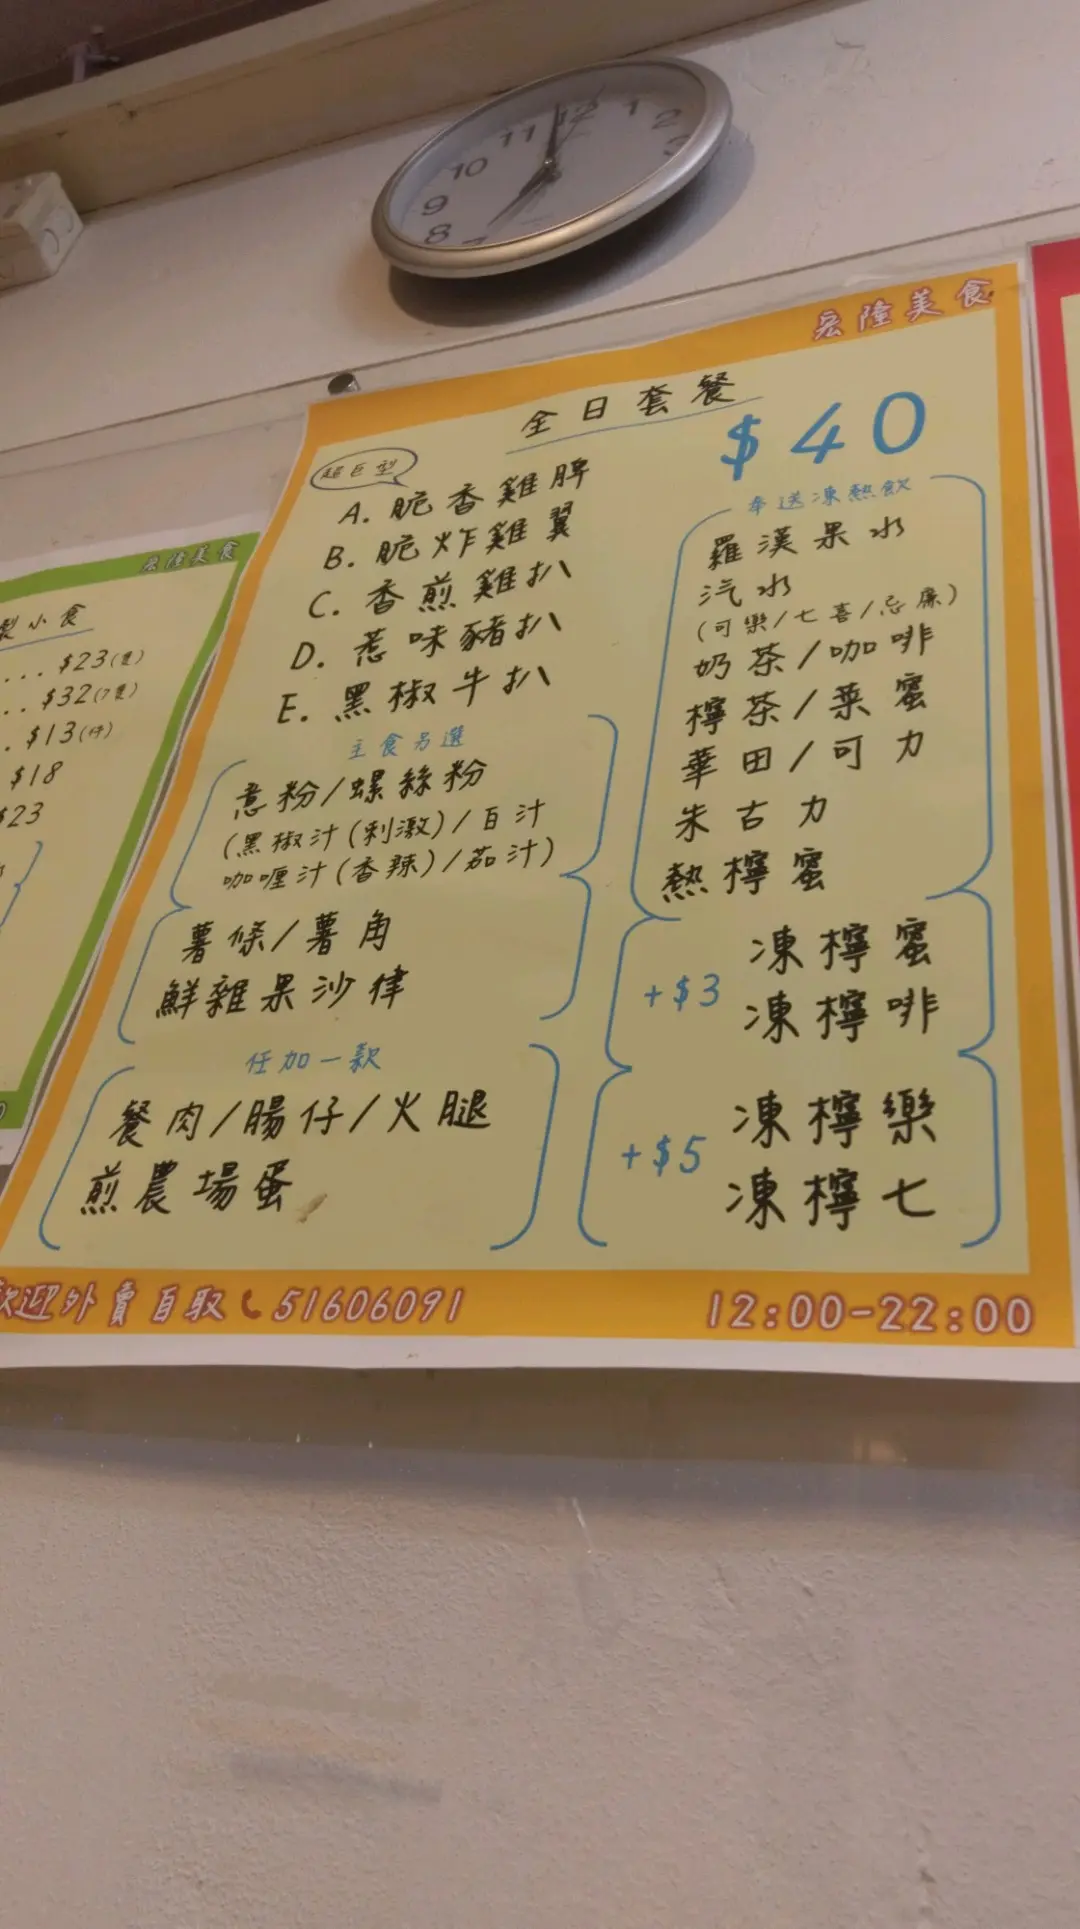 12
11
10
9
8
7
1
2
3
宏隆美食
製小食
... $23(隻)
.. $32(7隻)
. $13(件)
$18
$23
宏隆美食
全日套餐
$40
超巨型
A. 脆香雞脾
B. 脆炸雞翼
C. 香煎雞扒
D. 惹味豬扒
E. 黑椒牛扒
主食另選
意粉/螺絲粉
(黑椒汁(刺激)/白汁
咖喱汁(香辣)/茄汁)
薯條/薯角
鮮雜果沙律
任加一款
餐肉/腸仔/火腿
煎農場蛋
奉送凍熱飲
羅漢果水
汽水
(可樂/七喜/忌廉)
奶茶/咖啡
檸茶/菜蜜
華田/可力
朱古力
熱檸蜜
+$3
凍檸蜜
凍檸啡
+$5
凍檸樂
凍檸七
歡迎外賣自取 51606091
12:00-22:00